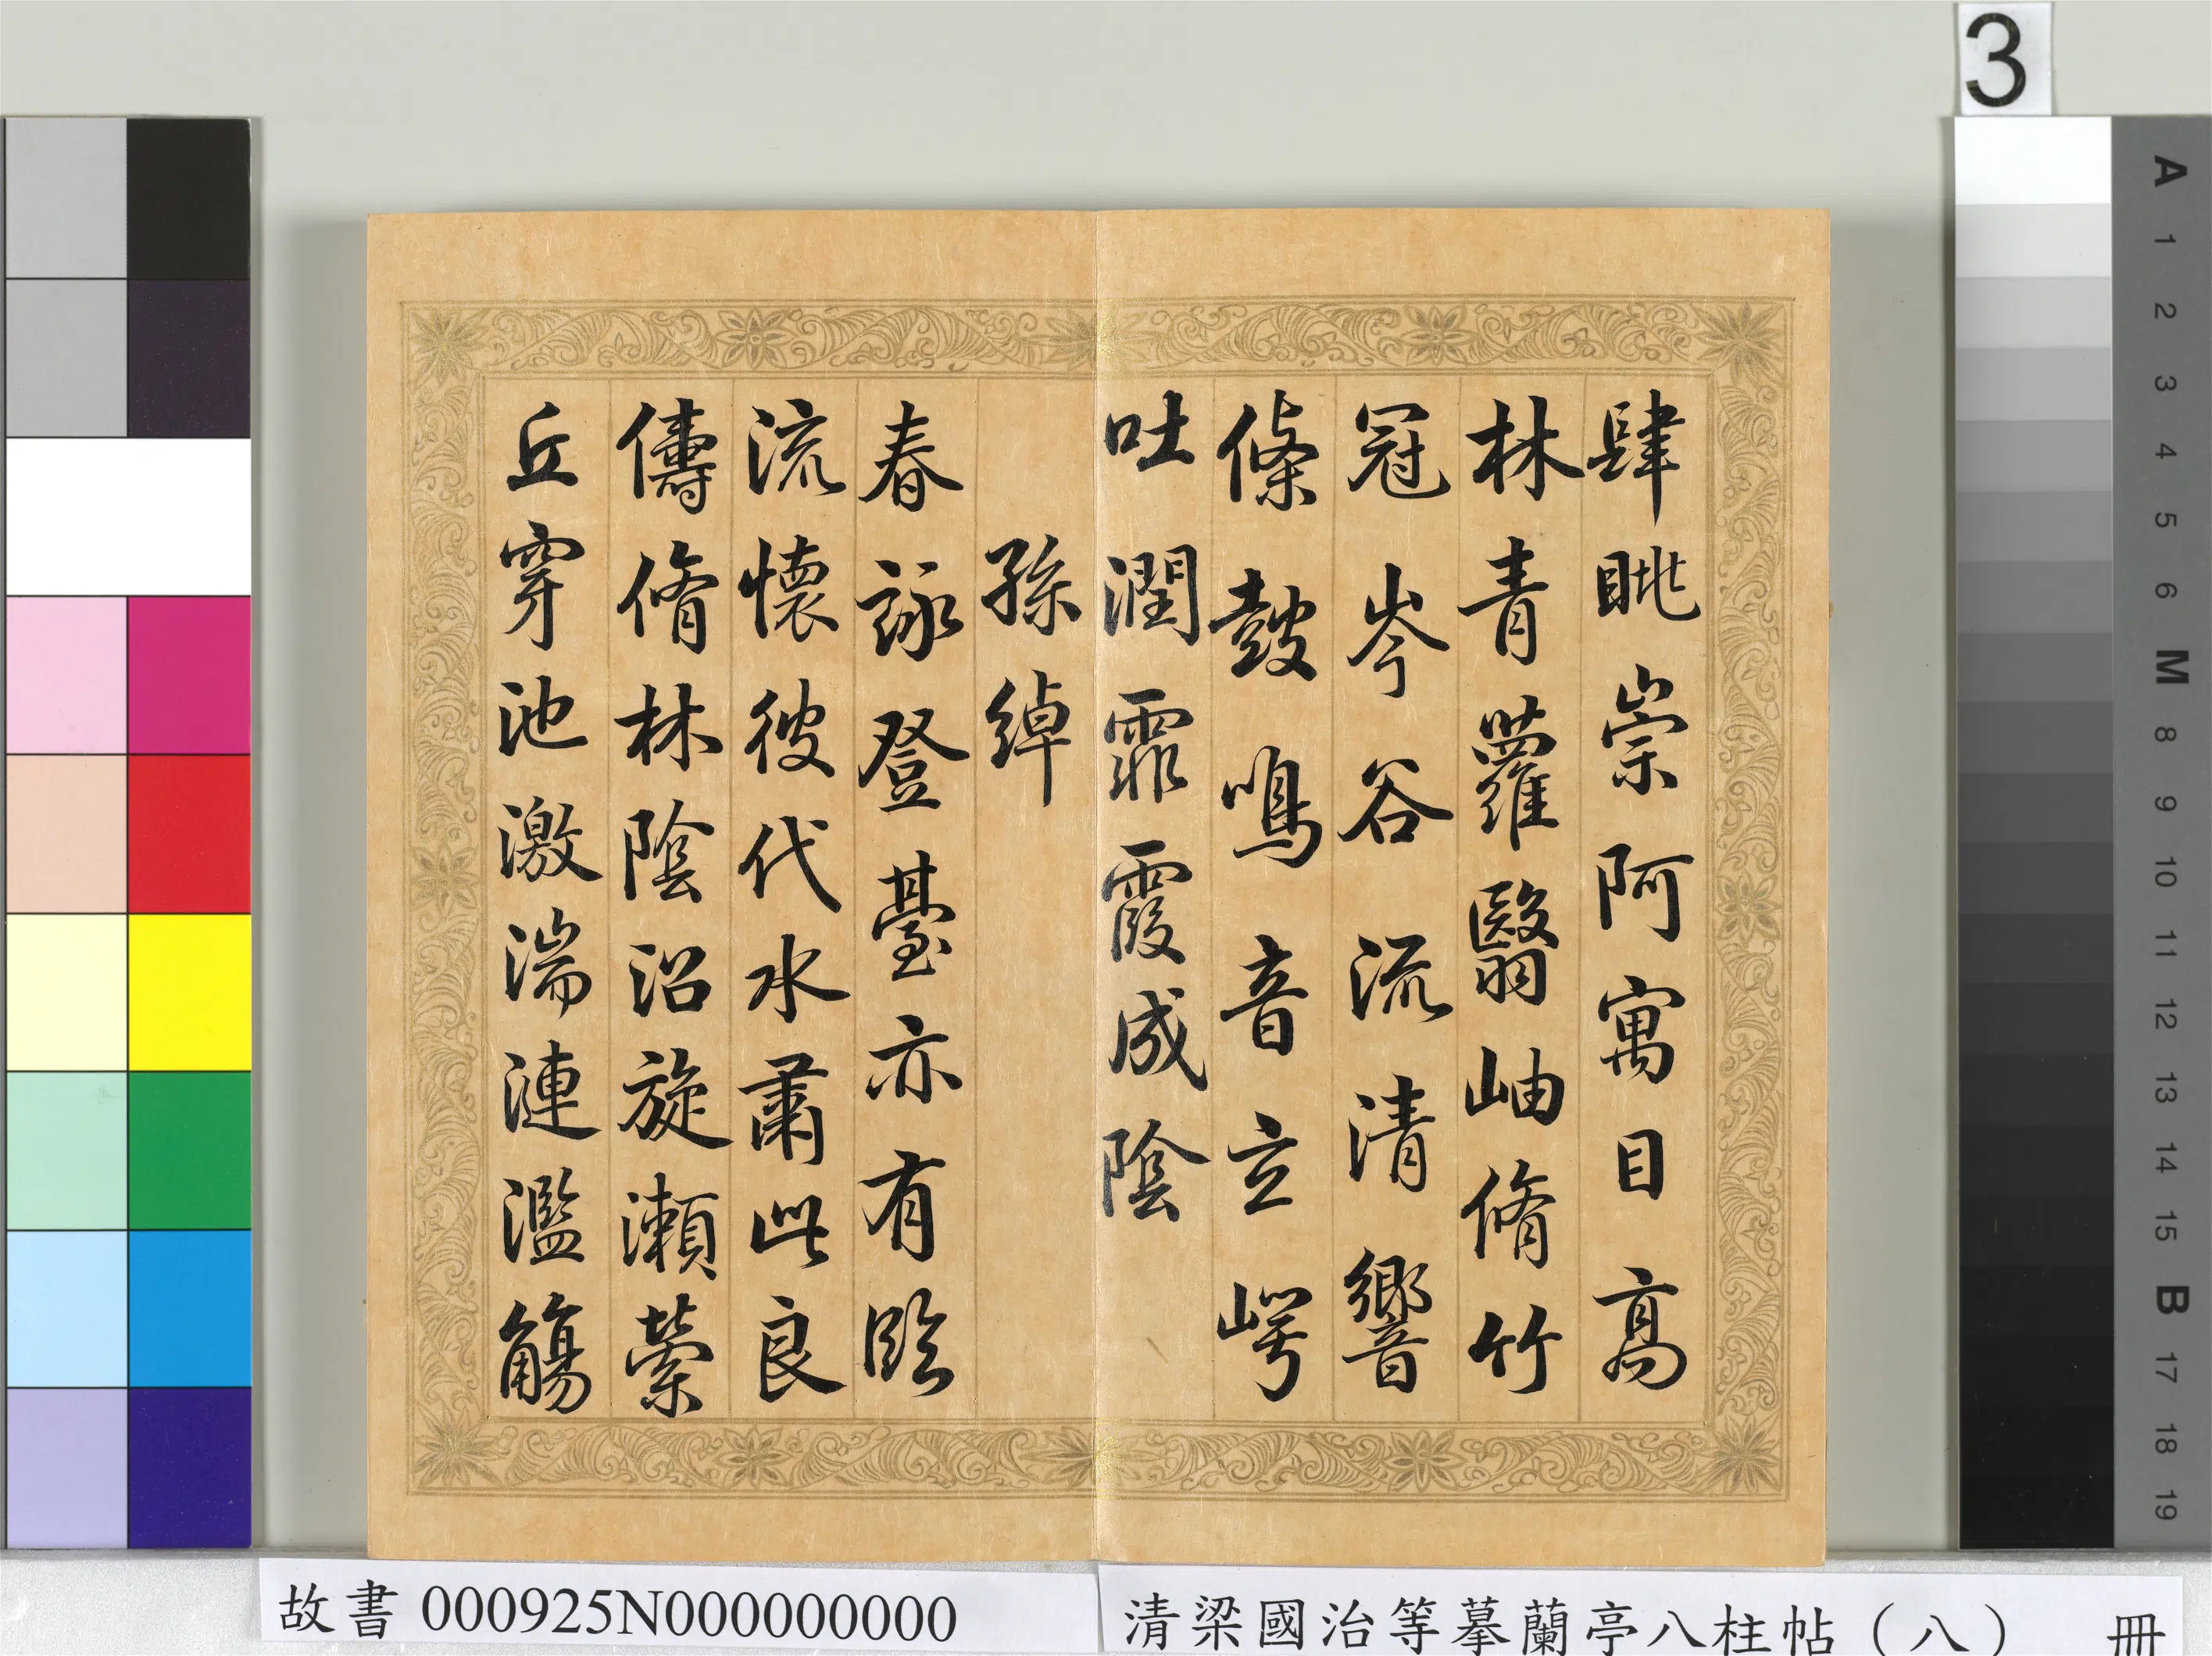 3
肆眺崇阿寓目高
林青蘿翳岫脩竹
冠岑谷流清響
條鼓鳴音立崿
吐潤霏霧成陰
孫綽
春詠登臺亦有臨
流懷彼伐木肅此良
儔脩林陰沼旋瀨縈
丘穿池激湍連濫觴
A 1 2 3 4 5 6 M 8 9 10 11 12 13 14 15 B 17 18 19
故書 000925N000000000
清梁國治等摹蘭亭八柱帖（八） 冊